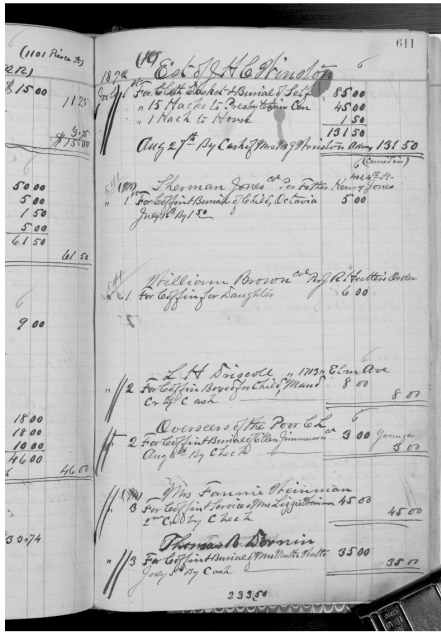 (1101 Pierce St)
$15.00
11 25
3.75
$15.00
50 00
5 00
1 50
5 00
61 50
61 50
9 00
18 00
18 00
10 00
46 00
46 00
33.74
611
Est of J H C Winston
For Cloth Casket & Burial of Self 85 00
" 15 Hacks to Presbyterian Cem 45 00
" 1 Hack to House 1 50
131 50
Aug 27th By Cash of Mrs M J Winston Admx 131 50
Sherman Jones col Per Father Henry Jones
" 1 For Coffin & Burial of Child, Octavia 5 00
July By 1 50
William Brown col Per J R Hutter's Order
1 For Coffin for Daughter 6 00
L H Driscoll " 1713 Elm Ave
2 For Coffin Boxed for Child, Maud 8 00
Cr By Cash 8 00
Overseers of the Poor C L
2 For Coffin & Burial of Ellen 3 00 Younger
Aug By Check 3 00
Mrs Fannie
3 For Coffin & Services of Mrs Lizzie 45 00
Cr By Check 45 00
Thomas B Dornin
" 3 For Coffin & Burial of Mrs 35 00
July 5th By Cash 35 00
233.50